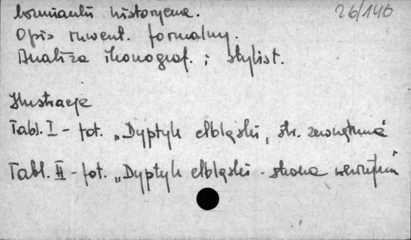 26/146
wzmianki historyczne.
Opis inwent. formalny.
Analiza ikonograf. i stylist.
Ilustracje
Tabl. I - fot. „Dyptyk elbląski, str. zewnętrzna
Tabl. II - fot. „Dyptyk elbląski - strona wewnętrzna